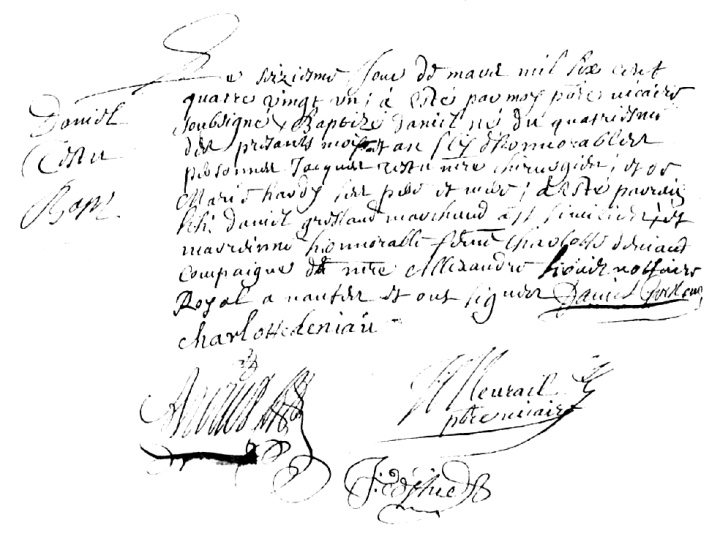 Daniel
Testu
Bapt.
Le sizziesme Jour de mars mil six cent
quatre vingt un, a esté par moy pbre vicaire
soubsigné Baptizé daniel né du quatriesme
des presants mois et an fils d'honnorables
personnes Jacques testu mre chirurgien, et de
Marie hardy ses pere et mere, a esté parain
daniel marchand a st et
mareinne honnorable feme Charlotte deniaud
compaigne de mre Allexandre notaire
Royal a nantes et ont signer Daniel
charlotte deniau
pbre vicaire